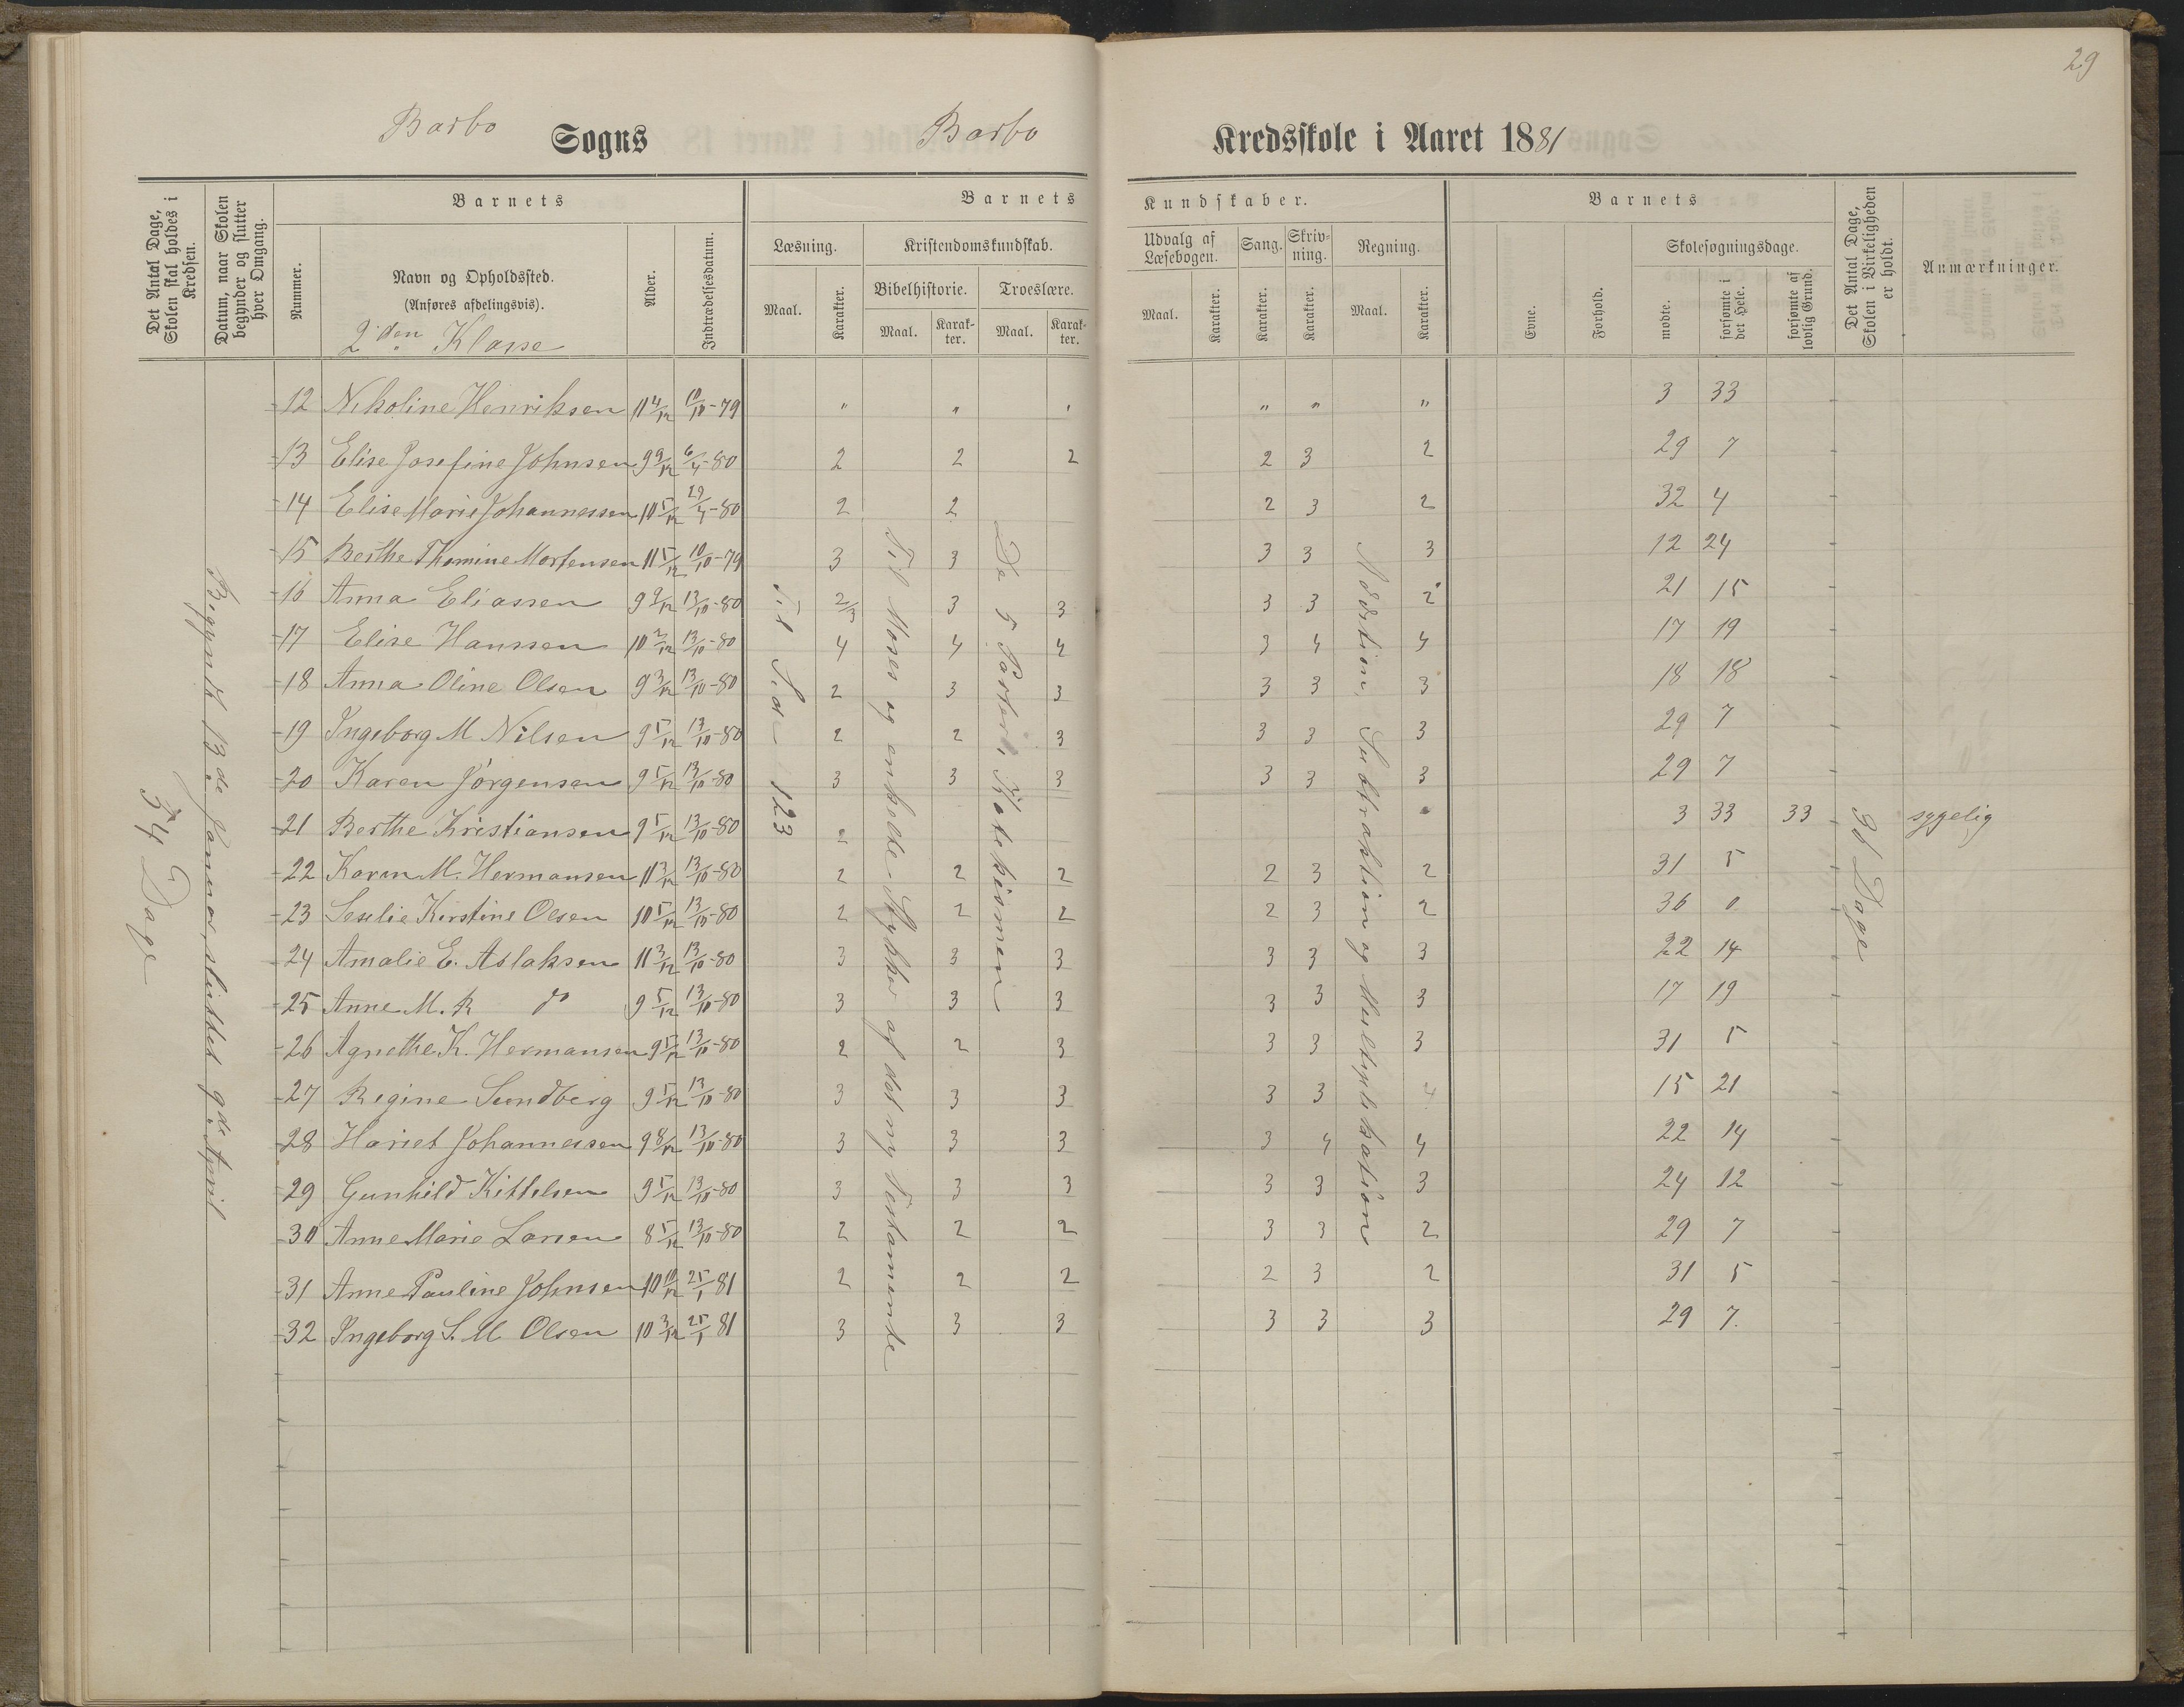 29
Barbo Sogns Barbo Kredsskole i Aaret 1881
Det Antal Dage, Skolen skal holdes i Kredsen.
Datum, naar Skolen begynder og slutter hver Omgang.
Barnets
Nummer.
Navn og Opholdssted.
(Anføres afdelingsvis).
2den Klasse
Alder.
Indtrædelsesdatum.
Barnets Kundskaber.
Læsning.
Maal.
Karakter.
Kristendomskundskab.
Bibelhistorie.
Maal.
Karakter.
Troeslære.
Maal.
Karakter.
Udvalg af Læsebogen.
Maal.
Karakter.
Sang.
Karakter.
Skrivning.
Karakter.
Regning.
Maal.
Karakter.
Barnets
Evne.
Forhold.
Skolesøgningsdage.
mødte.
forsømte i det Hele.
forsømte af lovlig Grund.
Det Antal Dage, Skolen i Virkeligheden er holdt.
Anmærkninger.
34 Dage
Begyndt 13de Januar, sluttet 9de April
Til Side 123
Til Moses og enkelte Stykker af det ny Testamente
De 5 Parter i Katekismen
Addition, Subtraktion og Multiplikation
36 Dage
12 Nikoline Henriksen 11 4/12 10/10-79 " " " " " " 3 33
13 Elise Josefine Johnsen 9 9/12 6/4-80 2 2 2 2 3 2 29 7
14 Elise Marie Johannessen 10 5/12 29/4-80 2 2 2 3 2 32 4
15 Berthe Thomine Mortensen 11 5/12 10/10-79 3 3 3 3 3 12 24
16 Anna Eliassen 9 9/12 13/10-80 2/3 3 3 3 3 2 21 15
17 Elise Hanssen 10 2/12 13/10-80 4 4 4 3 4 4 17 19
18 Anna Oline Olsen 9 3/12 13/10-80 2 3 3 3 3 3 18 18
19 Ingeborg M Nilsen 9 5/12 13/10-80 2 2 3 3 3 3 29 7
20 Karen Jörgensen 9 5/12 13/10-80 3 3 3 3 3 3 29 7
21 Berthe Kristiansen 9 5/12 13/10-80 2 3 33 33 sygelig
22 Karen M. Hermansen 11 3/12 13/10-80 2 2 2 2 3 2 31 5
23 Seselie Kirstine Olsen 10 5/12 13/10-80 2 2 2 2 3 2 36 0
24 Amalie E. Aslaksen 11 3/12 13/10-80 3 3 3 3 3 3 22 14
25 Anne M. K do 9 5/12 13/10-80 3 3 3 3 3 3 17 19
26 Agnethe K. Hermansen 9 5/12 13/10-80 2 2 3 3 3 3 31 5
27 Regine Sundberg 9 5/12 13/10-80 3 3 3 3 3 4 15 21
28 Hariet Johannessen 9 8/12 13/10-80 3 3 3 3 4 4 22 14
29 Gunhild Kittelsen 9 5/12 13/10-80 3 3 3 3 3 3 24 12
30 Anne Marie Larsen 8 5/12 13/10-80 2 2 2 3 3 2 29 7
31 Anne Pauline Johnsen 10 10/12 25/1 81 2 2 2 2 3 2 31 5
32 Ingeborg S. M Olsen 10 3/12 25/1 81 3 3 3 3 3 3 29 7.